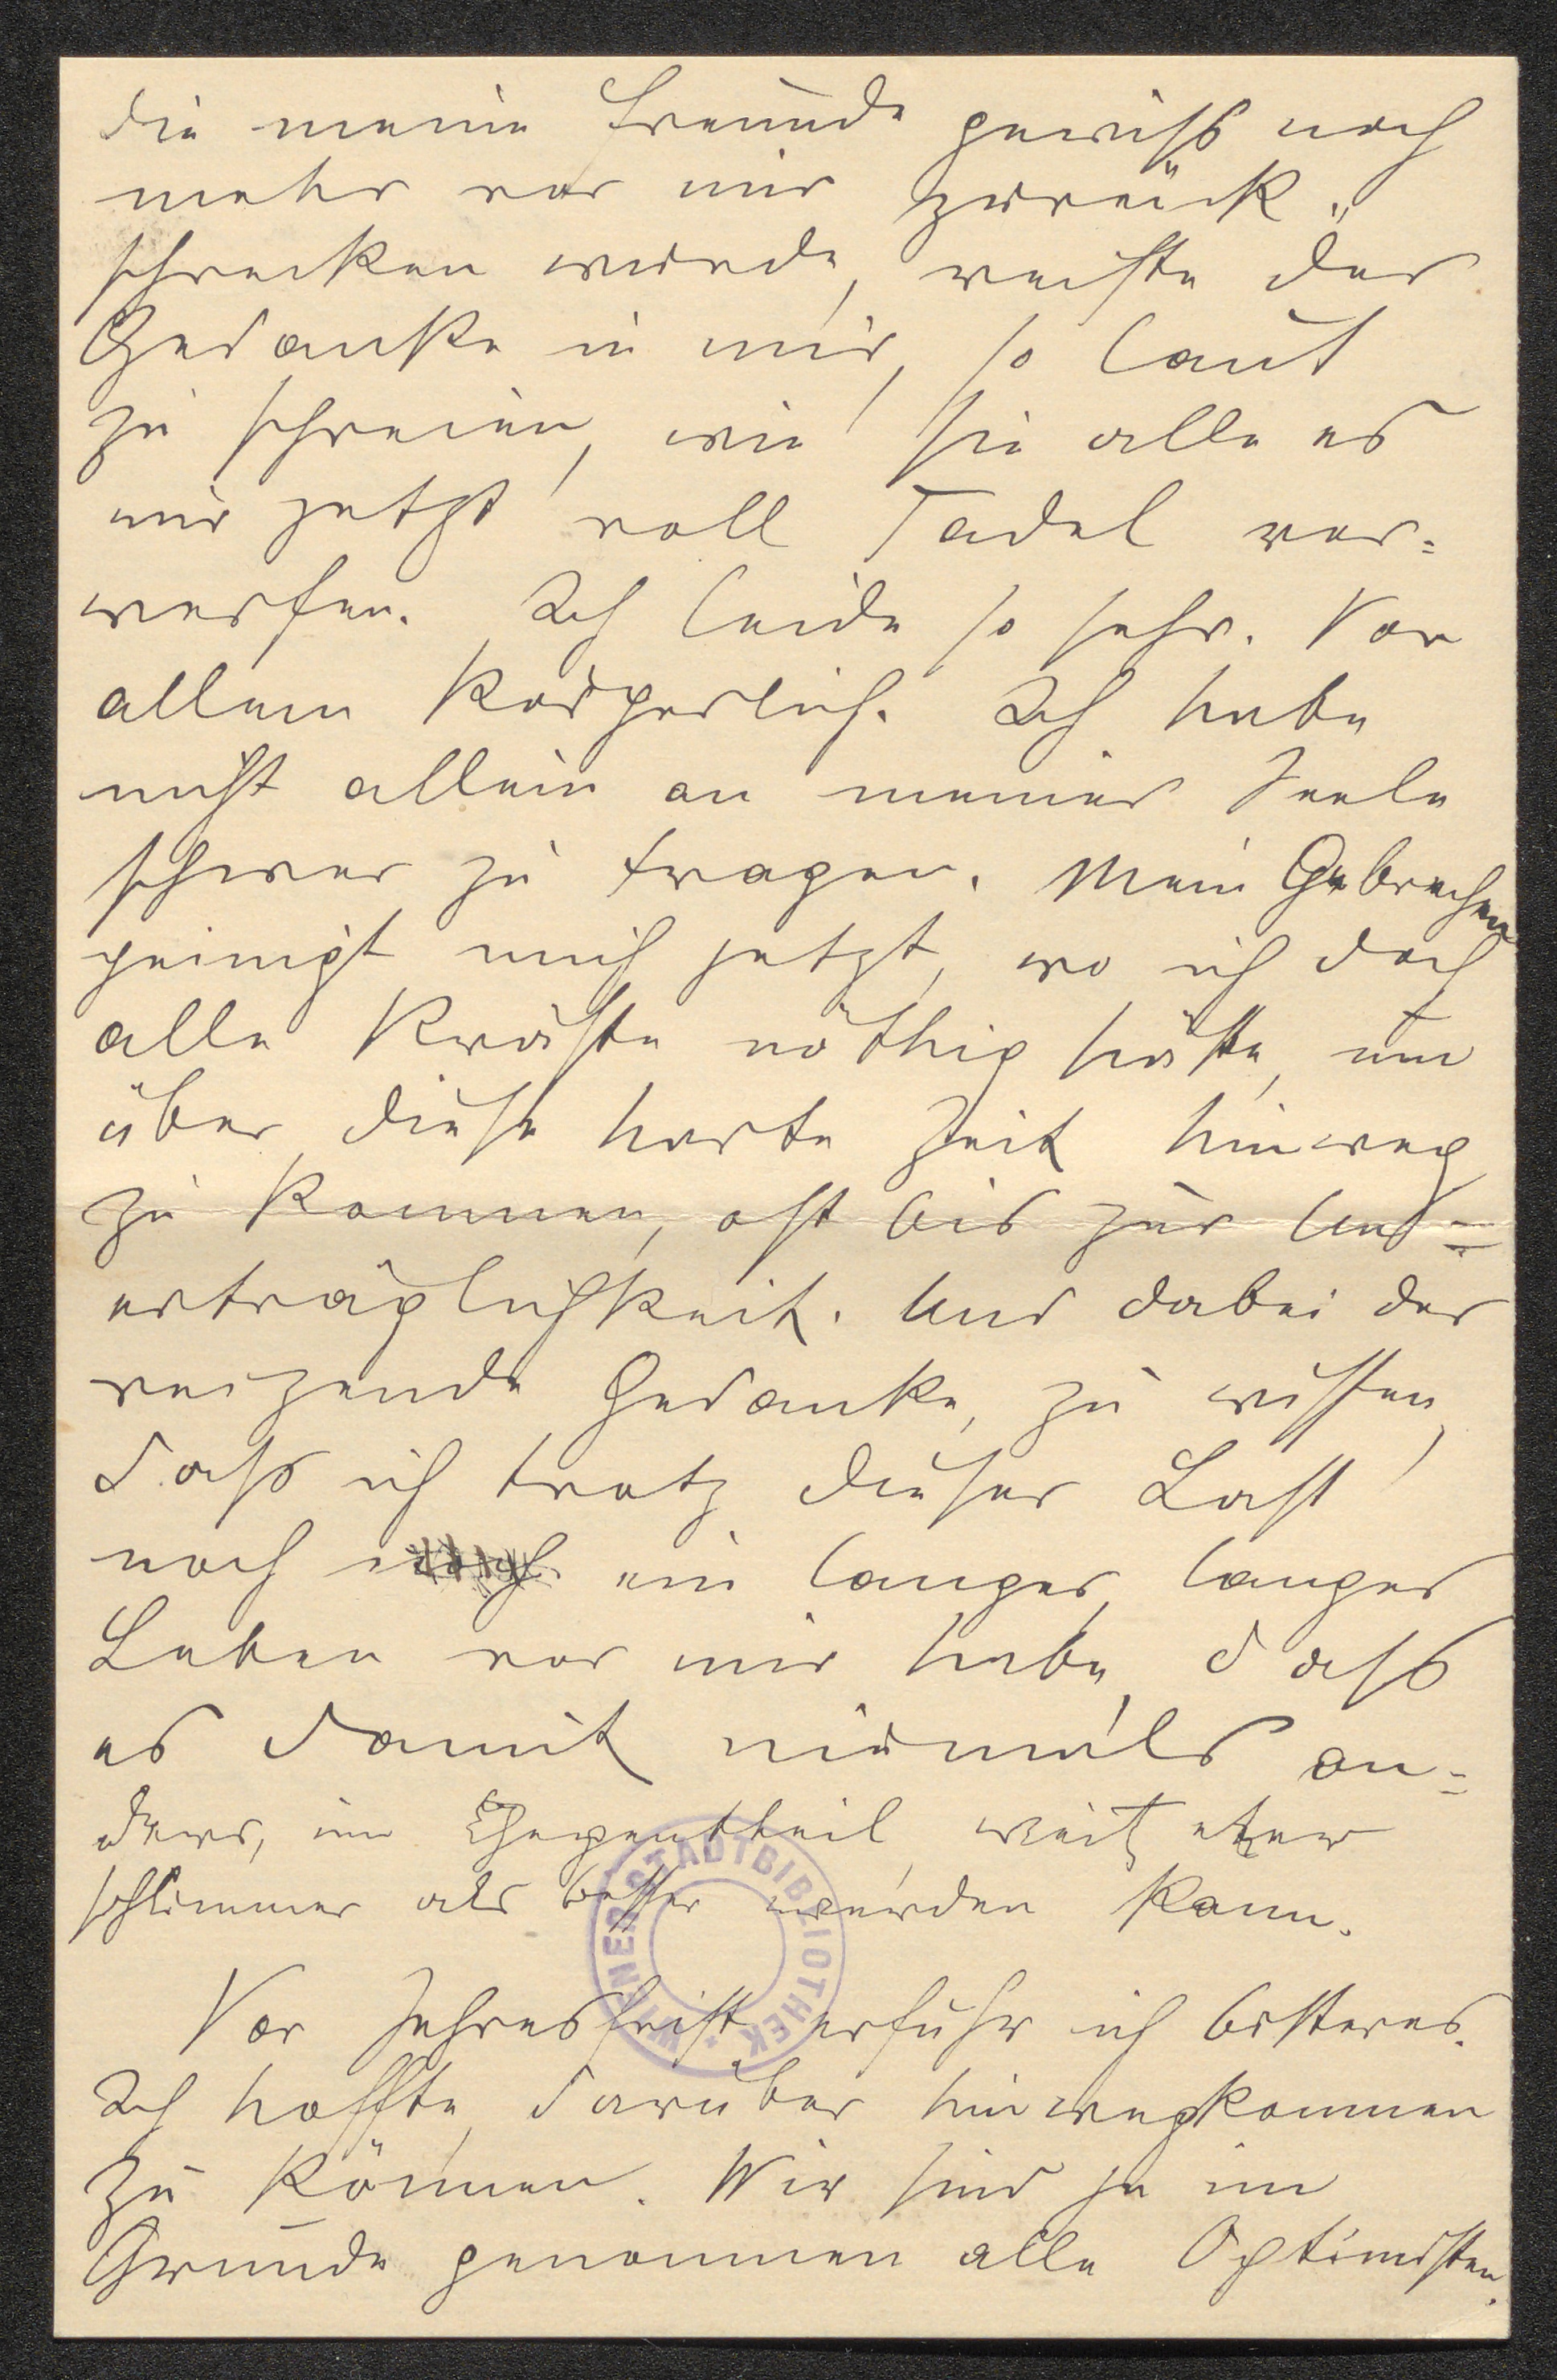 die meine Freunde gewiß noch
mehr vor mir zurück
schrecken würde, reifte der
Gedanke in mir, so laut
zu schreien, wie sie alle es
mir jetzt voll Tadel vor-
werfen. Ich leide so sehr. Vor
allem körperlich. Ich habe
nicht allein an meiner Seele
schwer zu tragen. Mein Gebrechen
peinigt mich jetzt, wo ich doch
alle Kräfte nöthig hätte, um
über diese harte Zeit hinweg
zu kommen, oft bis zur Un-
erträglichkeit. Und dabei der
reizende Gedanke, zu wissen,
daß ich trotz dieser Last
noch ein langes, langes
Leben vor mir habe, daß
es damit niemals an-
ders, im Gegentheil, weit eher
schlimmer als besser werden kann.
Vor Jahresfrist erfuhr ich
Ich hoffte, darüber hinwegkommen
zu können. Wir sind ja im
Grunde genommen alle Optimisten.
WIENER STADTBIBLIOTHEK